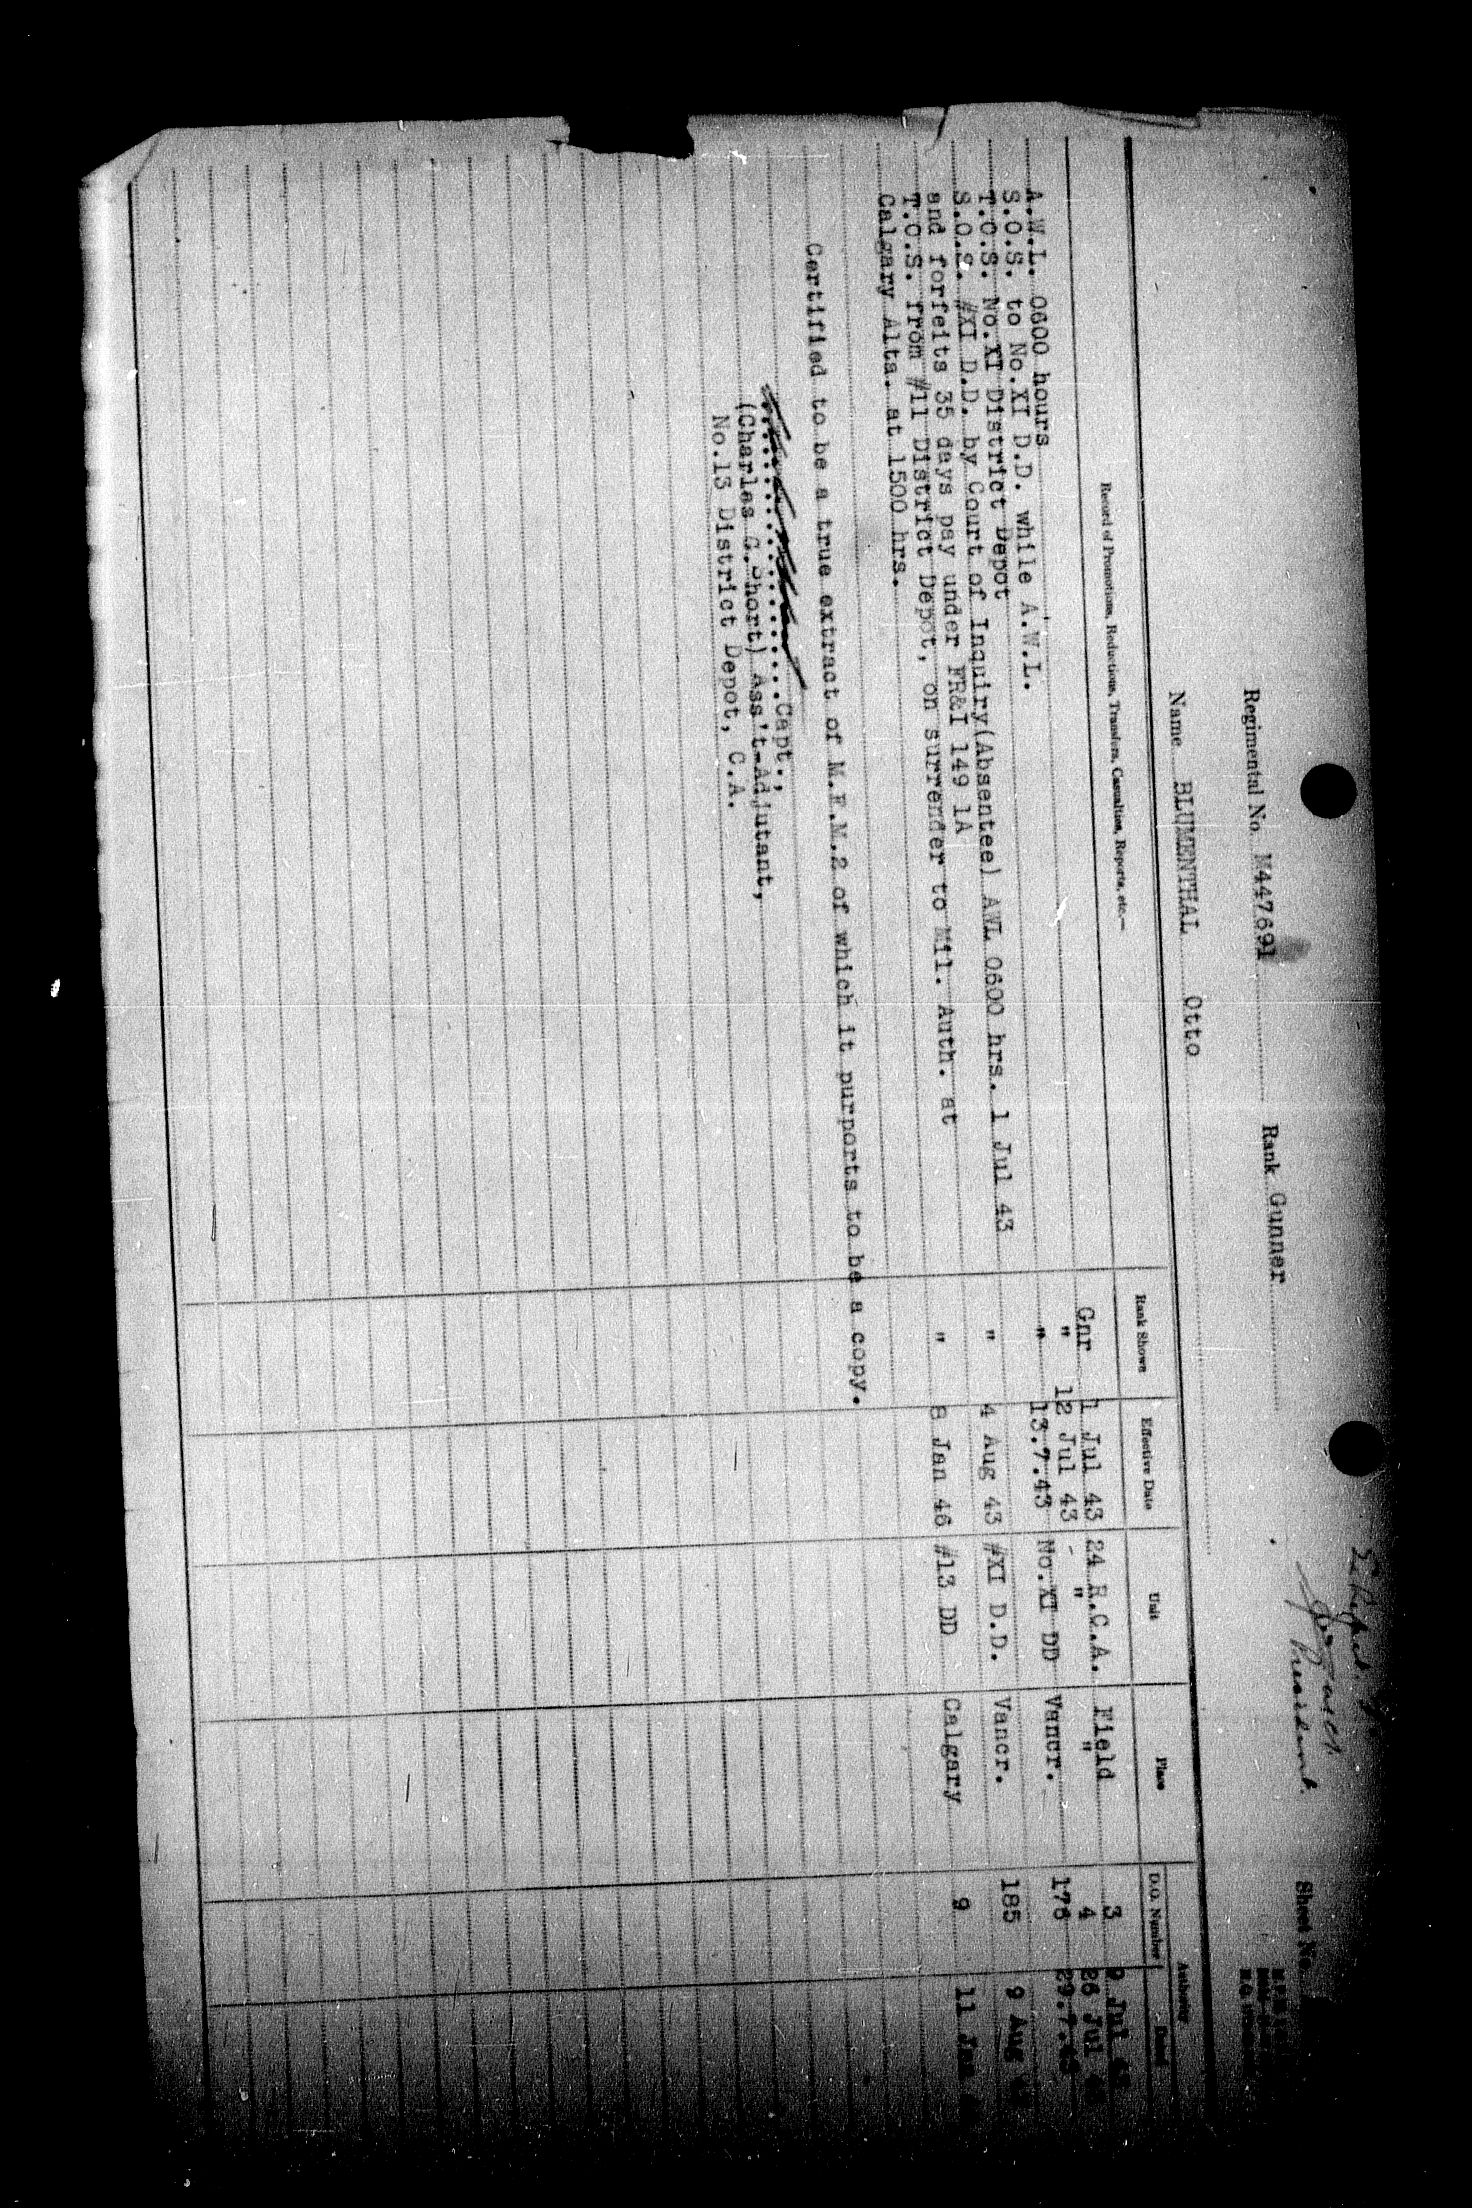 Sheet No.
President.
Regimental No. M447691 Rank Gunner
Name BLUMENTHAL Otto
Record of Promotions, Reductions, Transfers, Casualties, Reports, etc.— Rank Shown Effective Date Unit Place Authority
D.O. Number Dated
A.W.L. 0600 hours Gnr 1 Jul 43 24 R.C.A. Field 3 9 Jul
S.O.S. to No.XI D.D. while A.W.L. " 12 Jul 43 - " " 4 26 Jul
T.O.S. No.XI District Depot " 13.7.43 No.XI DD Vancr. 176 29.7.43
S.O.S. #XI D.D. by Court of Inquiry(Absentee) AWL 0600 hrs. 1 Jul 43
and forfeits 35 days pay under FR&I 149 1A " 4 Aug 43 #XI D.D. Vancr. 185 9 Aug
T.O.S. from #11 District Depot, on surrender to Mil. Auth. at
Calgary Alta. at 1500 hrs. " 8 Jan 46 #13 DD Calgary 9 11 Jan
Certified to be a true extract of M.F.M.2 of which it purports to be a copy.
Capt.,
(Charles G.Short) Ass't-Adjutant,
No.13 District Depot, C.A.